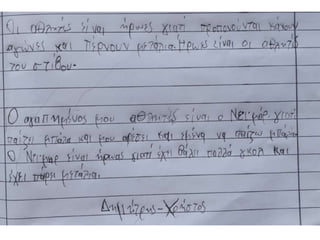 Οι αθλητές είναι ήρωες γιατί προπονούνται κάνουν
αγώνες και πέρνουν μετάλια. Ήρωες είναι οι αθλητές
του στίβου.
Ο αγαπημένος μου αθλητής είναι ο Νεϊμάρ γιατί
παίζει μπάλα και μου αρέσει και εμένα να παίζω μπάλα
Ο Νεϊμάρ είναι ήρωας γιατί έχει βάλει πολλά γκολ και
έχει πάρει μετάλια.
Δημήτρης - Χρήστος